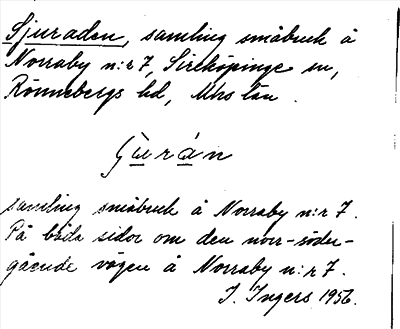 Sjuraden, samling småbruk å
Norraby n:r 7, Sireköpinge sn,
Rönnebergs hd, Mhs län.
Ju̱rá̱n
samling småbruk å Norraby n:r 7.
På båda sidor om den norr-söder-
gående vägen å Norraby n:r 7.
I. Ingers 1956.